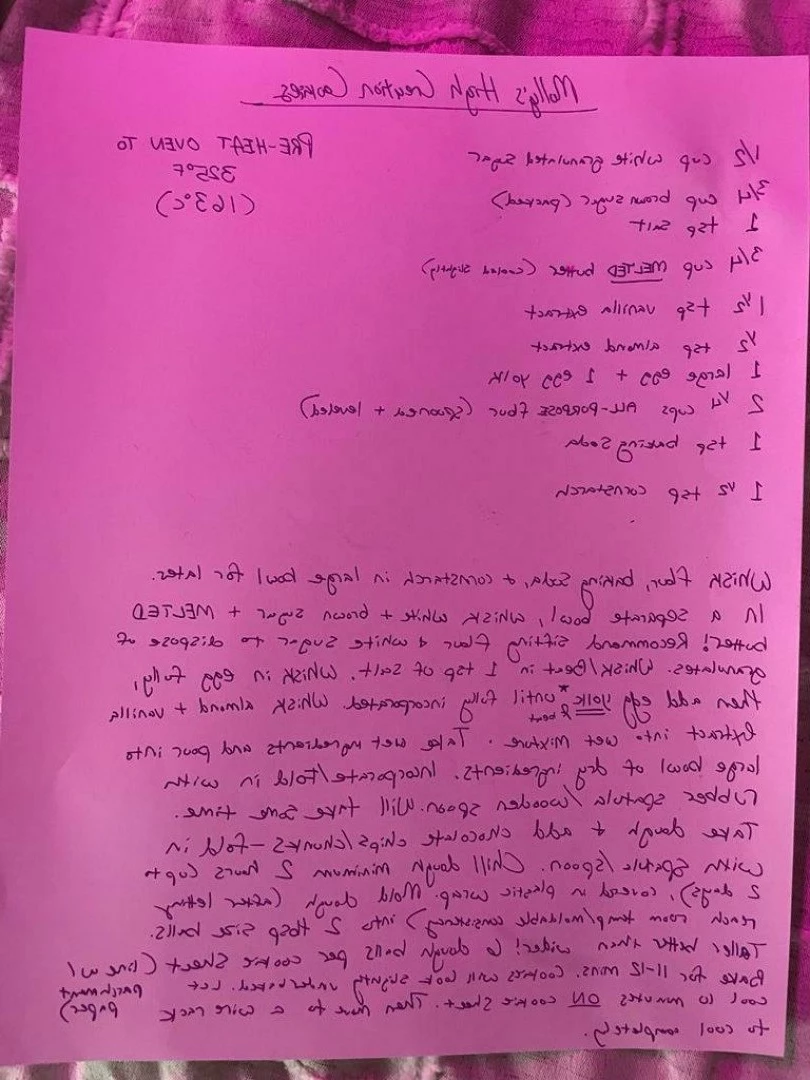 Molly's High Creation Cookies
PRE-HEAT OVEN TO
325°F
(163°C)
1/2 cup white granulated sugar
3/4 cup brown sugar (packed)
1 tsp salt
3/4 cup MELTED butter (cooled slightly)
1 1/2 tsp vanilla extract
1/2 tsp almond extract
1 large egg + 1 egg yolk
2 1/4 cups ALL-PURPOSE flour (spooned + leveled)
1 tsp baking soda
1 1/2 tsp cornstarch
Whisk flour, baking soda, + cornstarch in large bowl for later.
In a separate bowl, whisk white + brown sugar + MELTED
butter! Recommend sifting flour + white sugar to dispose of
granulates. Whisk/Beat in 1 tsp of salt. Whisk in egg fully,
then add egg yolk * & beat until fully incorporated. Whisk almond + vanilla
Extract into wet mixture. Take wet ingredients and pour into
large bowl of dry ingredients. Incorporate/fold in with
rubber spatula/wooden spoon. Will take some time.
Take dough + add chocolate chips/chunks - fold in
with spatula/spoon. Chill dough minimum 2 hours (up to
2 days), covered in plastic wrap. Mold dough (after letting
reach room temp/moldable consistency) into 2 tbsp size balls.
Taller better then wider! 6 dough balls per cookie sheet (line w/
parchment
paper)
Bake for 11-12 mins. Cookies will look slightly underbaked. Let
cool 10 minutes ON cookie sheet. Then move to a wire rack
to cool completely.